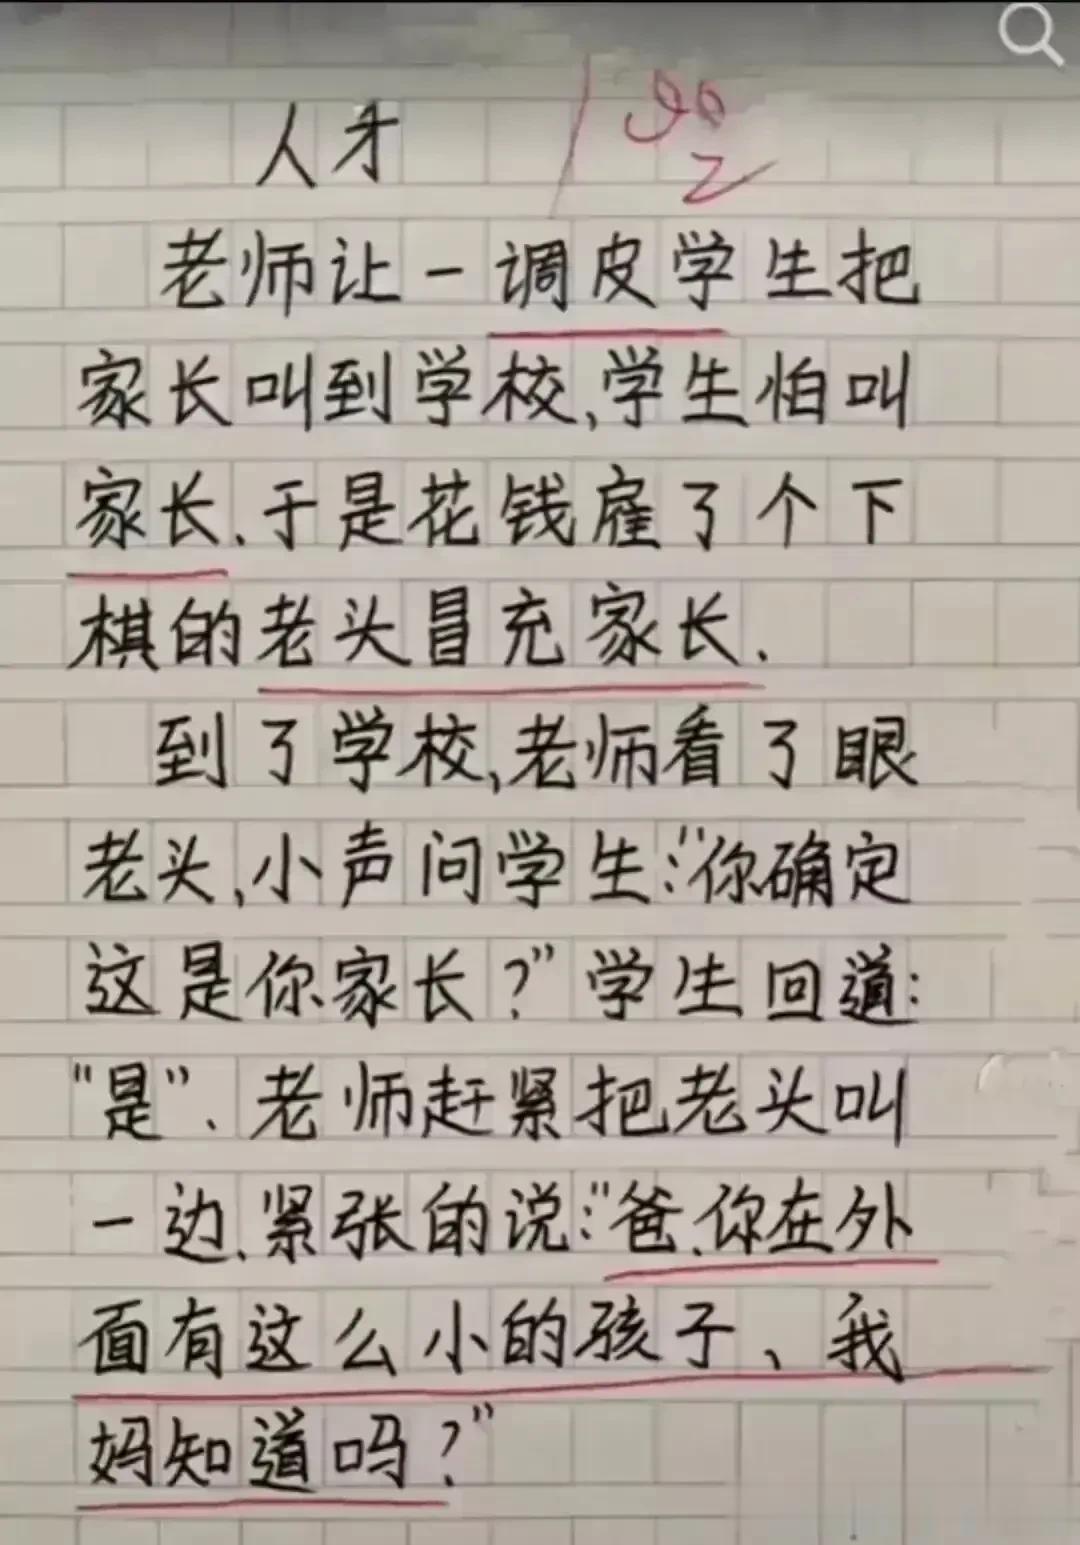 人才 100
老师让一调皮学生把
家长叫到学校,学生怕叫
家长.于是花钱雇了个下
棋的老头冒充家长.
到了学校,老师看了眼
老头,小声问学生:"你确定
这是你家长?"学生回道:
"是"、老师赶紧把老头叫
一边、紧张的说:"爸、你在外
面有这么小的孩子、我
妈知道吗?"